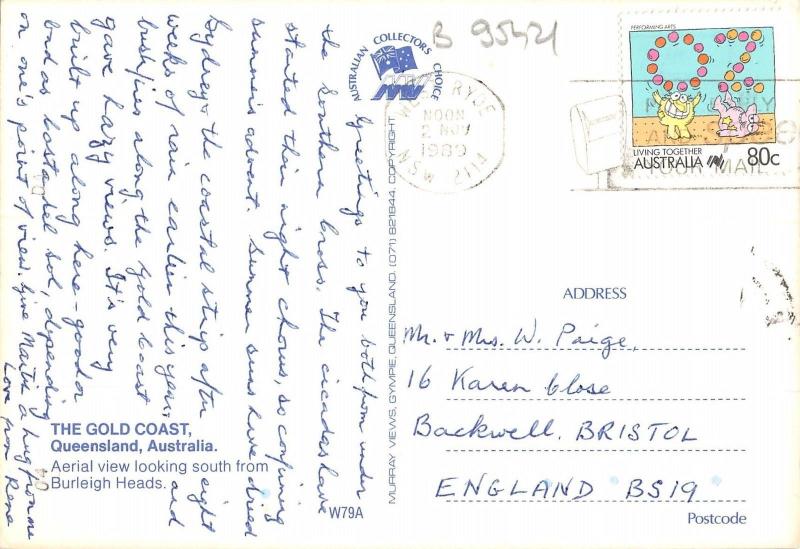 B 95421
AUSTRALIAN COLLECTORS CHOICE
WEST RYDE
NOON
2 NOV
1989
NSW 2114
YOUR MAIL
PERFORMING ARTS
OZ
LIVING TOGETHER
AUSTRALIA 80c
Greetings to you both from under
the Southern Cross. The cicadas have
started their night chorus, so confirming
summer's advent. Summer suns have dried
Sydney & the coastal strip after eight
weeks of rain earlier this year, and
bushfires along the gold coast
gave hazy views. It's very
built up along here - good or
bad as Costa del Sol, depending
on one's point of view. Give Martin a hug from me
Love from Rene
THE GOLD COAST,
Queensland, Australia.
Aerial view looking south from
Burleigh Heads.
W79A
MURRAY VIEWS, GYMPIE, QUEENSLAND. (071) 821844. COPYRIGHT
ADDRESS
Mr. & Mrs. W. Paige,
16 Karen Close
Backwell, BRISTOL
ENGLAND BS19
Postcode